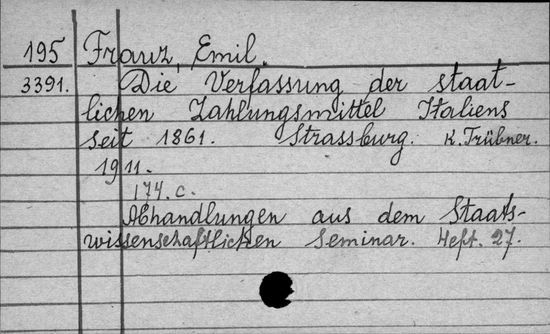 195 Franz, Emil.
3391. Die Verfassung der staat-
lichen Zahlungsmittel Italiens
seit 1861. Strassburg. K. Trübner.
1911.
174. c.
Abhandlungen aus dem Staats-
wissenschaftlichen Seminar. Heft. 27.